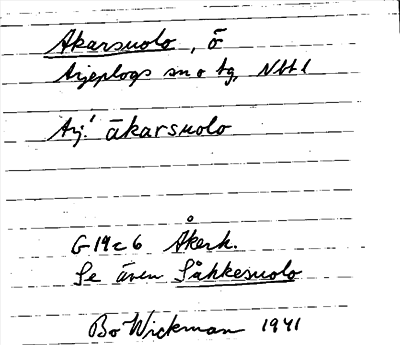 Akarsuolo, ö
Arjeplogs sn o tg, Nbtl
Arj! ākarsuolo
G 19c 6 Åkerh.
Se även Såhkesuolo
Bo Wickman 1941